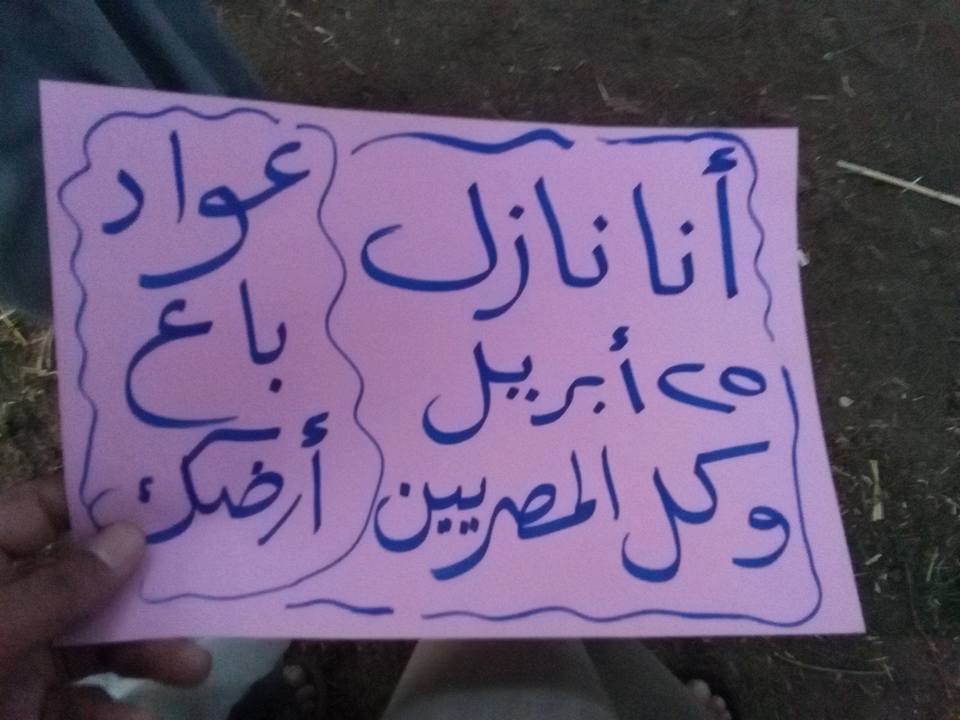 أنا نازل
٢٥ أبريل
وكل المصريين
عواد
باع
أرضك